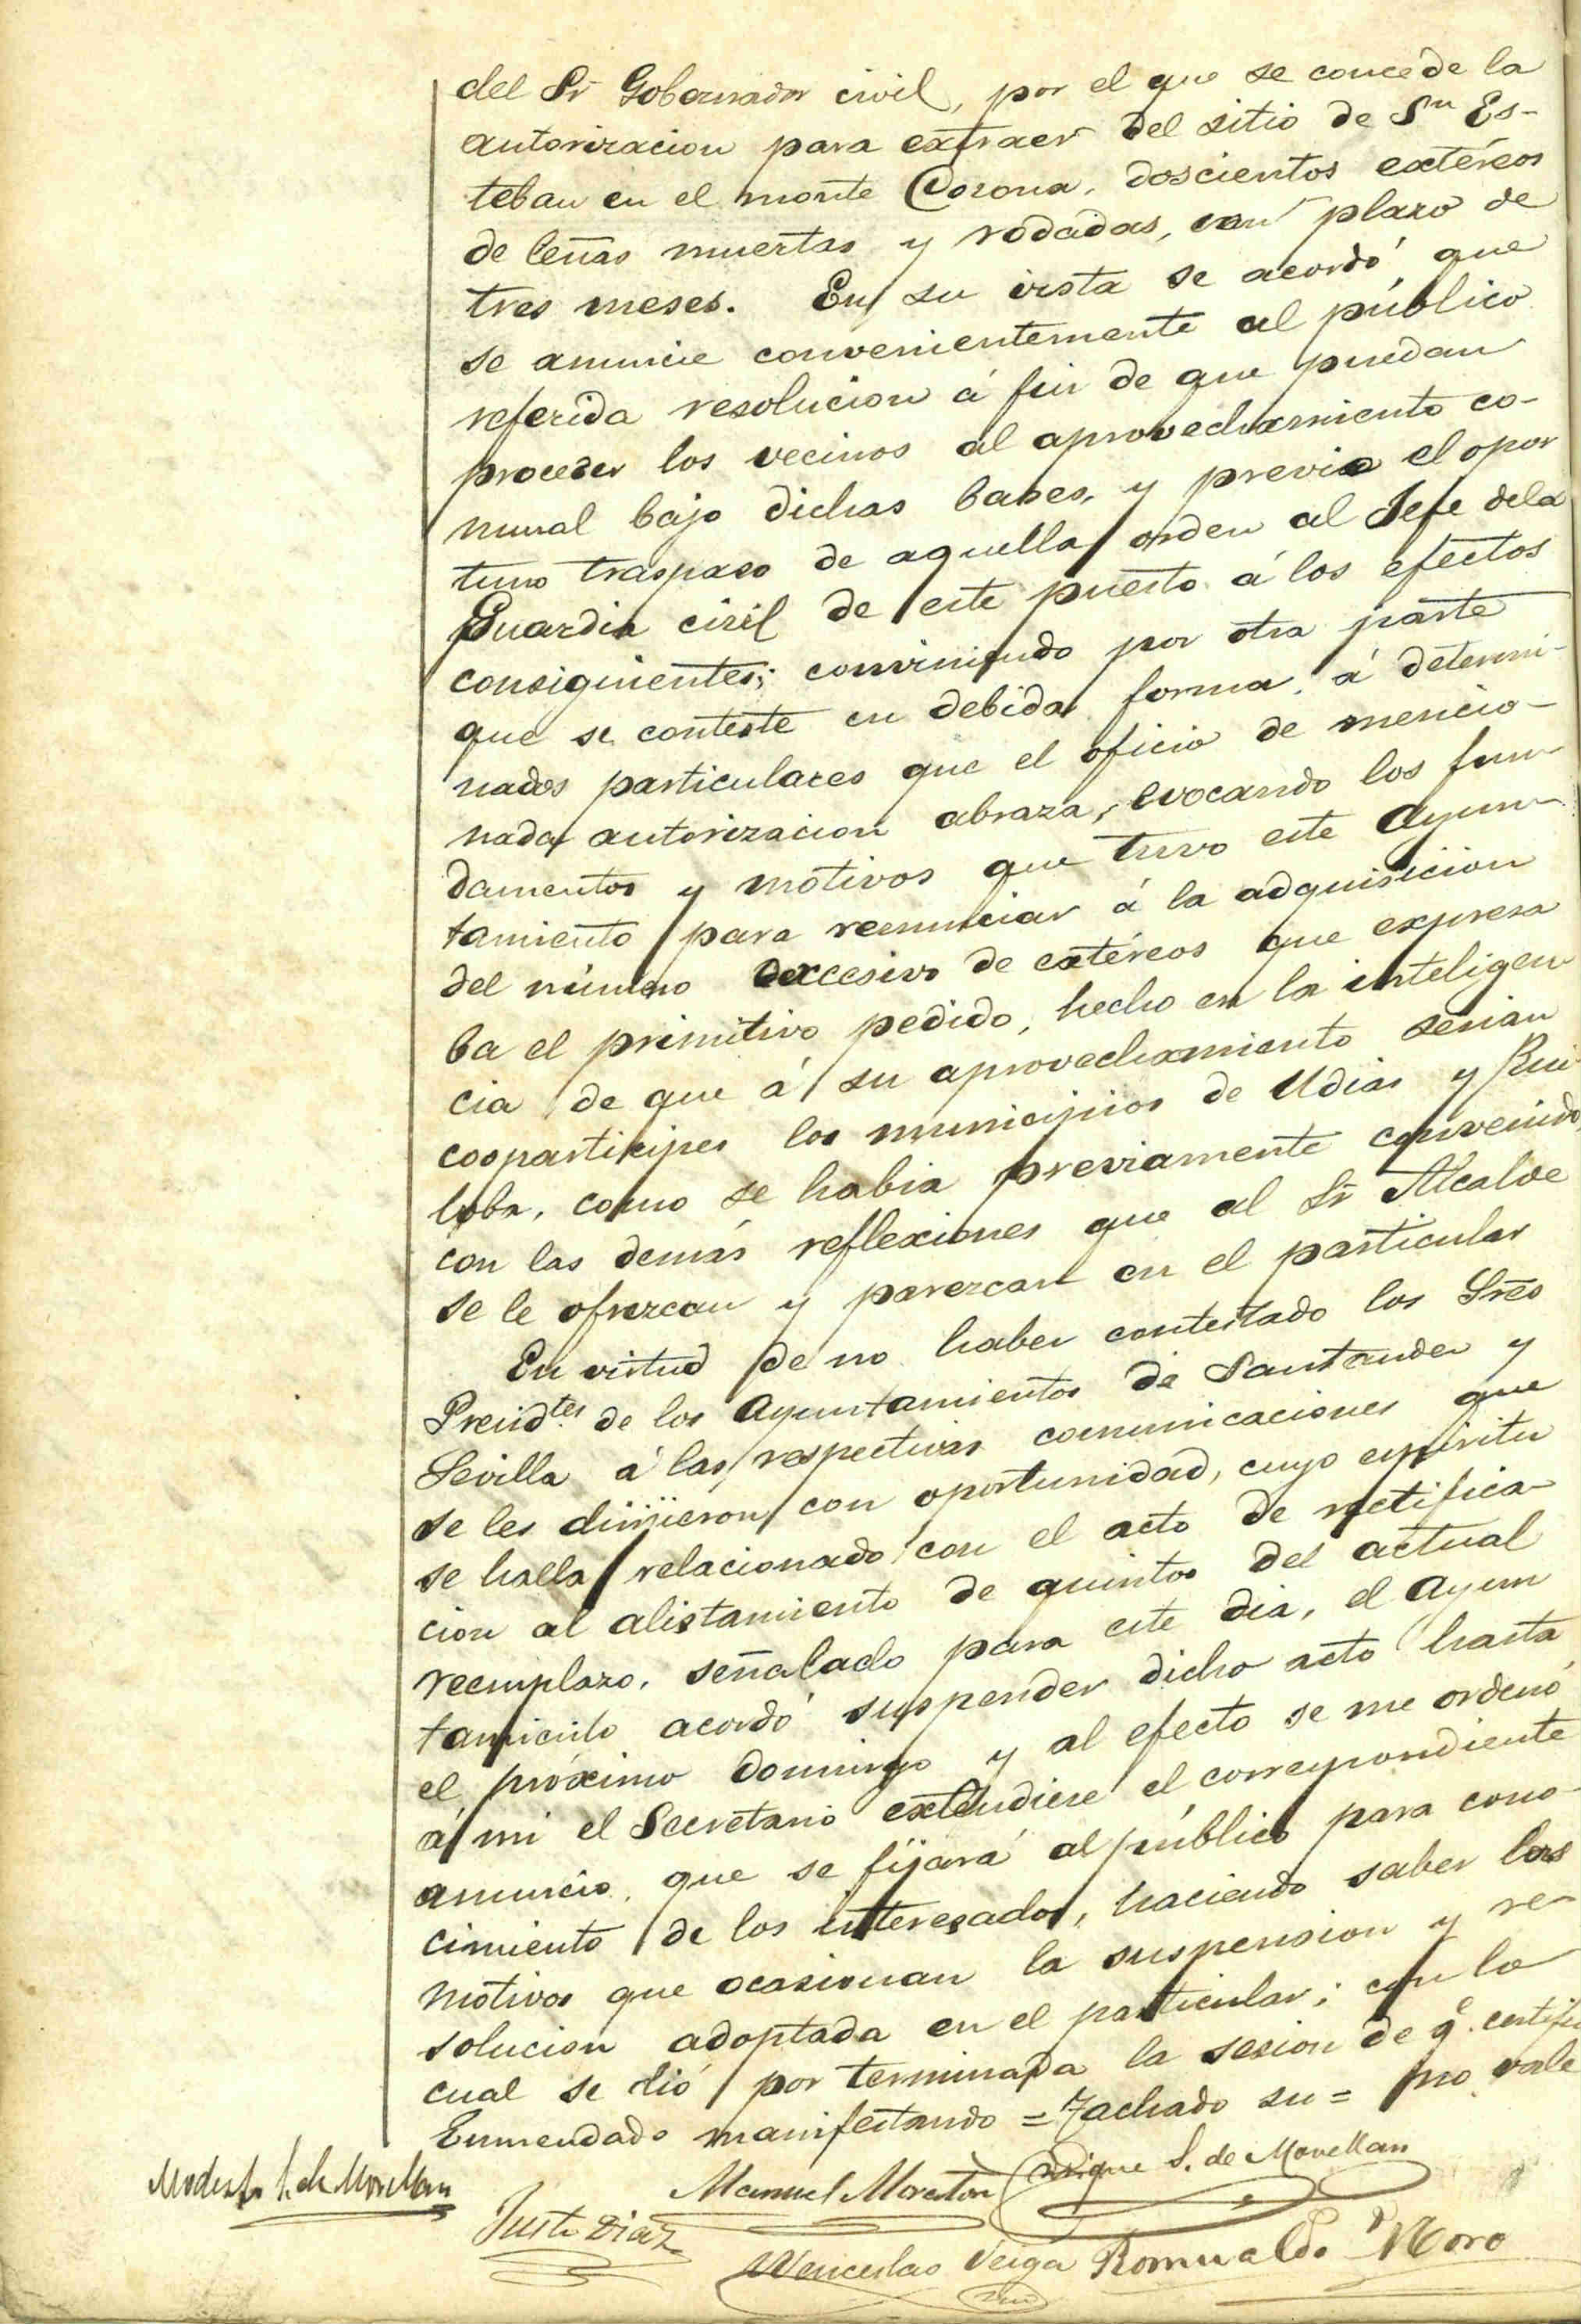 del Sr Gobernador civil, por el que se concede la
autorizacion para extraer del sitio de Sn Es-
teban en el monte Corona, doscientos extéreos
de leñas muertas y rodadas, con plazo de
tres meses. En su vista se acordó que
se anuncie convenientemente al público
referida resolucion á fin de que puedan
proceder los vecinos al aprovechamiento co-
munal bajo dichas bases, y previo el opor
tuno traspaso de aquella orden al Jefe dela
Guardia civil de este puesto á los efectos
consiguientes; conviniendo por otra parte
que se conteste en debida forma, á determi-
nados particulares que el oficio de mencio-
nada autorizacion abraza, evocando los fun-
damentos y motivos que tuvo este Ayun-
tamiento para renunciar á la adquisicion
del número excesivo de extéreos que expresa
ba el primitivo pedido, hecho en la inteligen
cia de que á su aprovechamiento serian
coopartícipes los municipios de Udias y Rui
loba, como se habia previamente convenido,
con las demás reflexiones que al Sr Alcalde
se le ofrezcan y parezcan en el particular
En virtud de no haber contestado los Sres
Presidtes de los Ayuntamientos de Santander y
Sevilla á las respectivas comunicaciones que
se les dirijieron con oportunidad, cuyo espiritu
se halla relacionado con el acto de rectifica-
cion al alistamiento de quintos del actual
reemplazo, señalado para este dia, el Ayun
tamiento acordó suspender dicho acto hasta
el próximo domingo y al efecto se me ordenó
á mi el Secretario extendiese el correspondiente
anuncio, que se fijará al público para cono-
cimiento de los interesados, haciendo saber los
motivos que ocasionan la suspension y re-
solucion adoptada en el particular; con lo
cual se dió por terminada la sesion de qe. certifico
Enmendado manifestando = Tachado su = no vale
Modesto S. de Movellan
Manuel Moraton
Enrique S. de Movellan
Justo Diaz
Wenceslao Veiga
Romualdo P. Moro